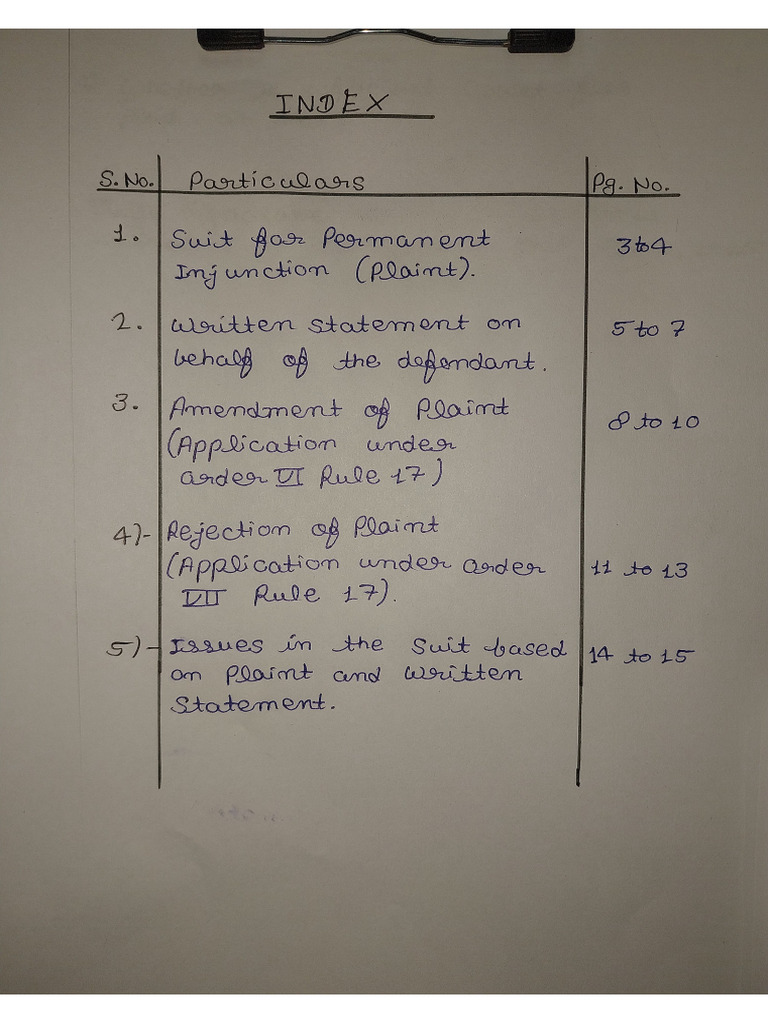 INDEX
S. No. Particulars Pg. No.
1. Suit for Permanent 3 to 4
Injunction (Plaint).
2. Written statement on 5 to 7
behalf of the defendant.
3. Amendment of Plaint 8 to 10
(Application under
order VI Rule 17)
4)- Rejection of Plaint
(Application under order 11 to 13
VII Rule 17).
5)- Issues in the Suit based 14 to 15
on Plaint and written
Statement.